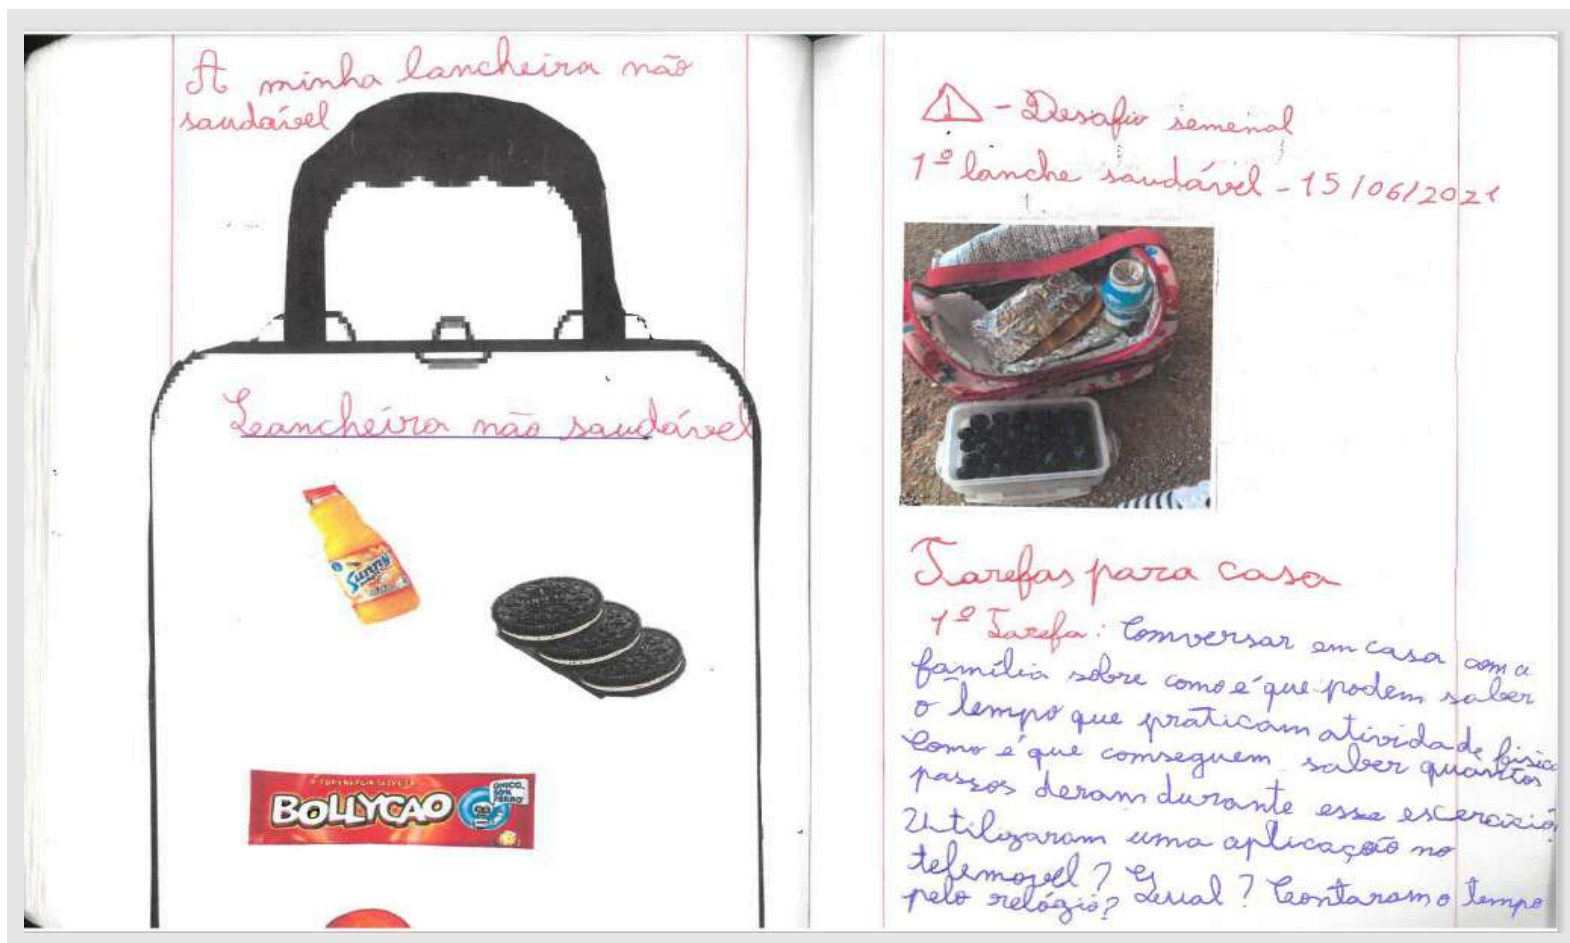 A minha lancheira não
saudável
Lancheira não saudável
Sunny
BOLLYCAO
ÚNICO,
- Desafio semenal
1º lanche saudável - 15/06/2021
Tarefas para casa
1º Tarefa: Comversar em casa com a
família sobre como é que podem saber
o tempo que praticam atividade física
Como é que comseguem saber quantos
passos deram durante esse escercício
Utilizaram uma aplicação no
telemovel? Qual? Contaram o tempo
pelo relógio?